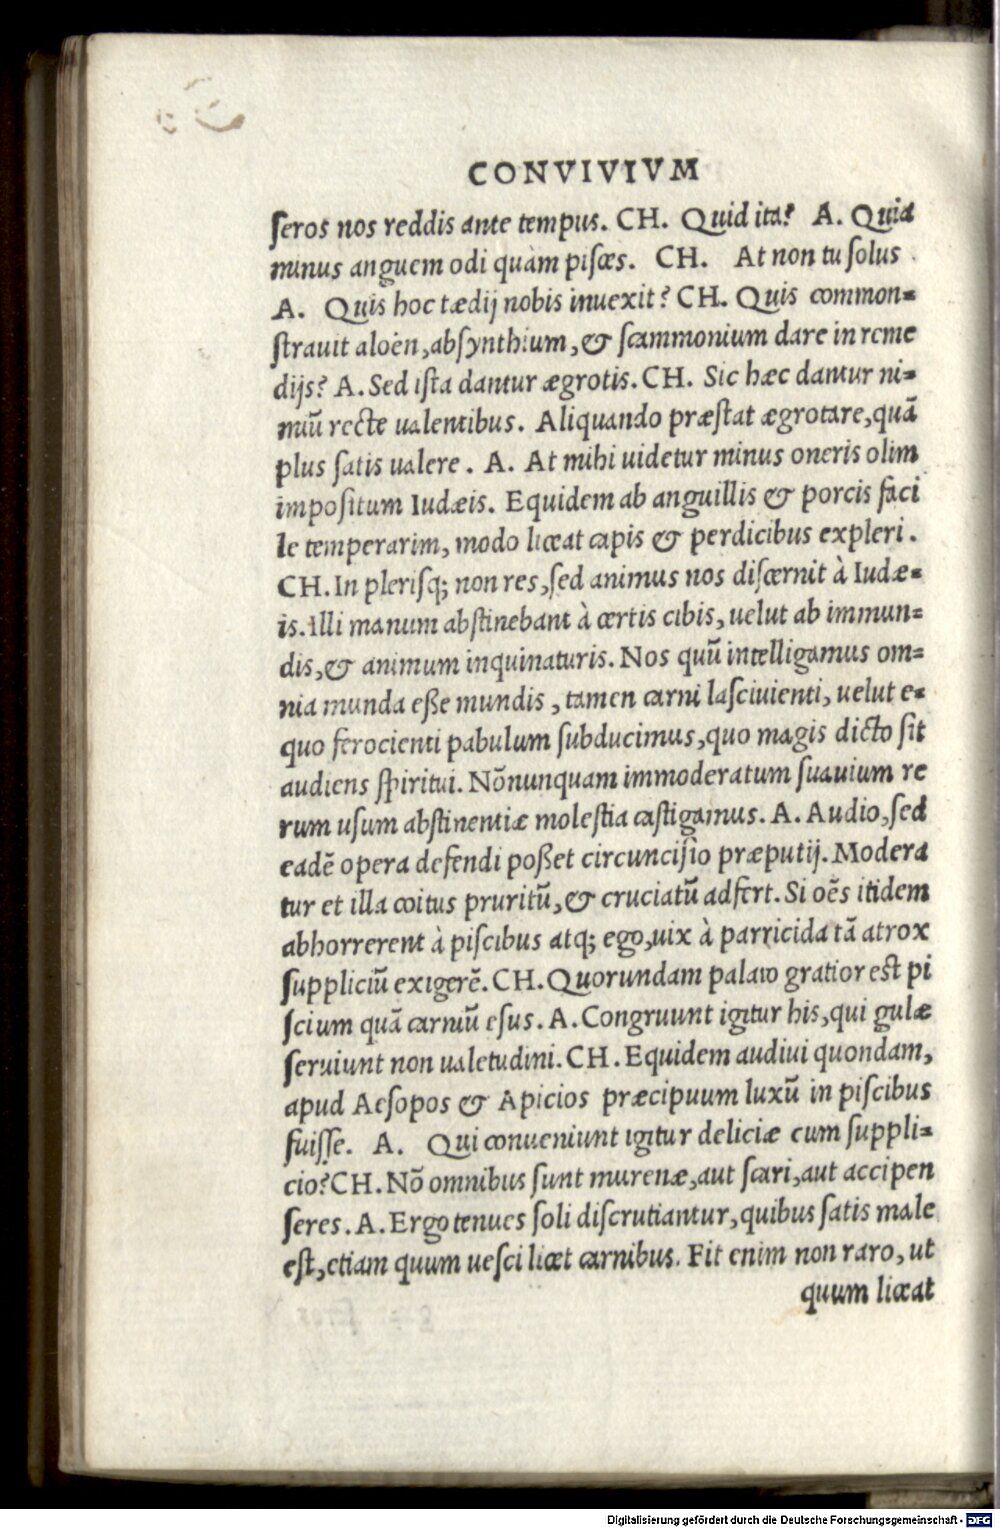 CONVIVIVM
ſeros nos reddis ante tempus. CH. Quid ita? A. Quia
minus anguem odi quàm piſces. CH. At non tu ſolus.
A. Quis hoc tædij nobis inuexit? CH. Quis common=
ſtrauit aloën, abſynthium, & ſcammonium dare in reme
dijs? A. Sed iſta dantur ægrotis. CH. Sic hæc dantur ni=
miū recte ualentibus. Aliquando præſtat ægrotare, quā
plus ſatis ualere. A. At mihi uidetur minus oneris olim
impoſitum Iudæis. Equidem ab anguillis & porcis faci
le temperarim, modo liceat capis & perdicibus expleri.
CH. In pleriſq; non res, ſed animus nos diſcernit à Iudæ=
is. Illi manum abſtinebant à certis cibis, uelut ab immun=
dis, & animum inquinaturis. Nos quū intelligamus om=
nia munda eße mundis, tamen carni laſciuienti, uelut e=
quo ferocienti pabulum ſubducimus, quo magis dicto ſit
audiens ſpiritui. Nōnunquam immoderatum ſuauium re
rum uſum abſtinentiæ moleſtia caſtigamus. A. Audio, ſed
eadē opera defendi poßet circunciſio præputij. Modera
tur et illa coitus pruritū, & cruciatū adfert. Si oēs itidem
abhorrerent à piſcibus atq; ego, uix à parricida tā atrox
ſuppliciū exigerē. CH. Quorundam palato gratior est pi
ſcium quā carniū eſus. A. Congruunt igitur his, qui gulæ
ſeruiunt non ualetudini. CH. Equidem audiui quondam,
apud Aeſopos & Apicios præcipuum luxū in piſcibus
fuiſſe. A. Qui conueniunt igitur deliciæ cum ſuppli=
cio? CH. Nō omnibus ſunt murenæ, aut ſcari, aut accipen
ſeres. A. Ergo tenues ſoli diſcrutiantur, quibus ſatis male
eſt, etiam quum ueſci licet carnibus. Fit enim non raro, ut
quum liceat
Digitalisierung gefördert durch die Deutsche Forschungsgemeinschaft - DFG